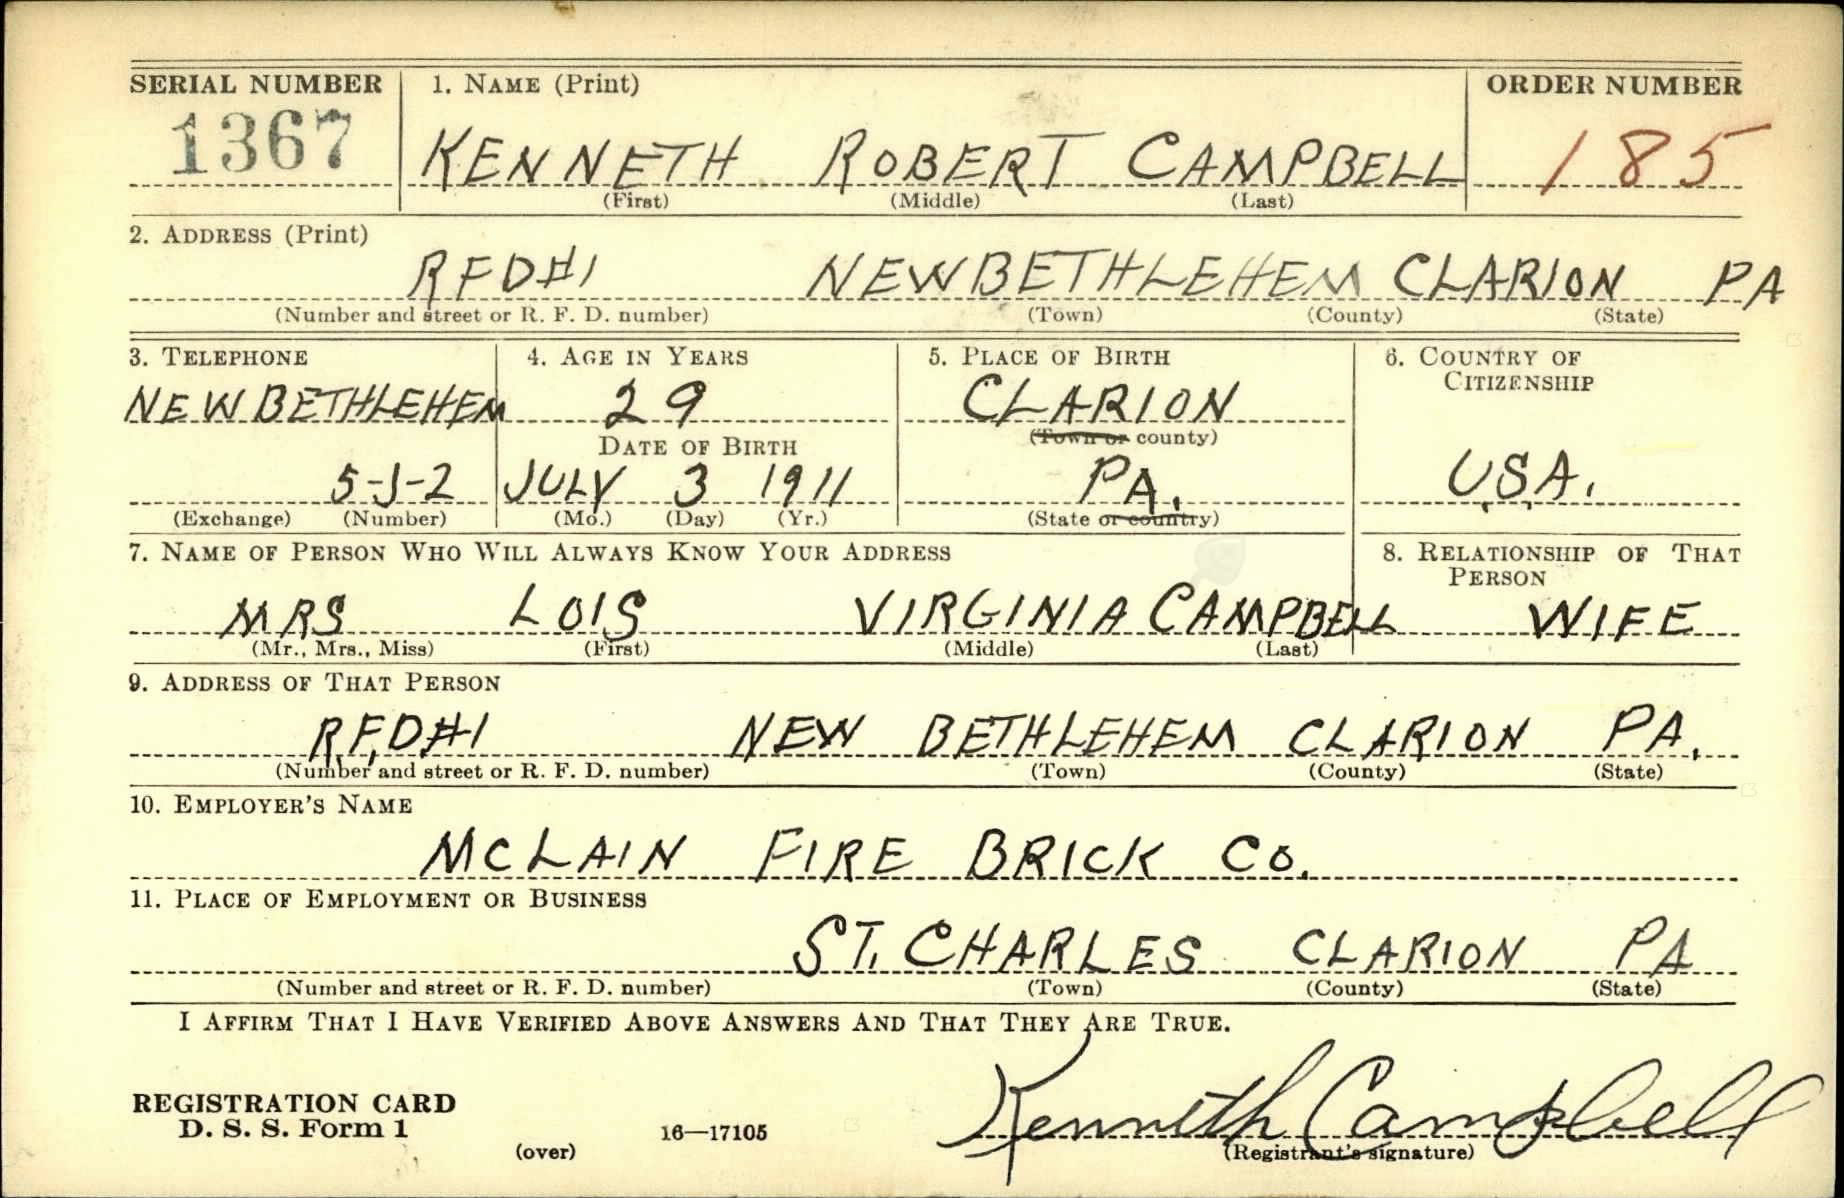 SERIAL NUMBER 1. NAME (Print) ORDER NUMBER
1367 KENNETH ROBERT CAMPBELL 185
(First) (Middle) (Last)
2. ADDRESS (Print)
RFD#1 NEW BETHLEHEM CLARION PA
(Number and street or R. F. D. number) (Town) (County) (State)
3. TELEPHONE 4. AGE IN YEARS 5. PLACE OF BIRTH 6. COUNTRY OF
CITIZENSHIP
NEW BETHLEHEM 29 CLARION
DATE OF BIRTH (Town or county)
5-J-2 JULY 3 1911 PA. U.S.A.
(Exchange) (Number) (Mo.) (Day) (Yr.) (State or country)
7. NAME OF PERSON WHO WILL ALWAYS KNOW YOUR ADDRESS 8. RELATIONSHIP OF THAT
PERSON
MRS LOIS VIRGINIA CAMPBELL WIFE
(Mr., Mrs., Miss) (First) (Middle) (Last)
9. ADDRESS OF THAT PERSON
R.F.D.#1 NEW BETHLEHEM CLARION PA.
(Number and street or R. F. D. number) (Town) (County) (State)
10. EMPLOYER'S NAME
MCLAIN FIRE BRICK CO.
11. PLACE OF EMPLOYMENT OR BUSINESS
ST. CHARLES CLARION PA
(Number and street or R. F. D. number) (Town) (County) (State)
I AFFIRM THAT I HAVE VERIFIED ABOVE ANSWERS AND THAT THEY ARE TRUE.
REGISTRATION CARD
D. S. S. Form 1 16—17105 Kenneth Campbell
(over) (Registrant's signature)